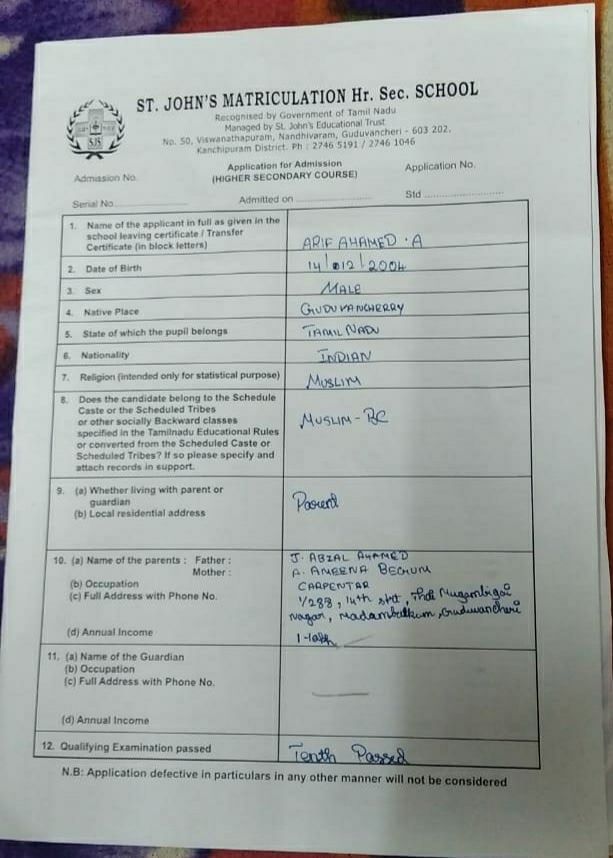 ST. JOHN'S MATRICULATION Hr. Sec. SCHOOL
Recognised by Government of Tamil Nadu
Managed by St. John's Educational Trust
No. 50, Viswanathapuram, Nandhivaram, Guduvancheri - 603 202.
Kanchipuram District. Ph : 2746 5191 / 2746 1046
SJS
Application for Admission
Admission No. (HIGHER SECONDARY COURSE) Application No.
Serial No. Admitted on Std
1. Name of the applicant in full as given in the
school leaving certificate / Transfer
Certificate (in block letters) ARIF AHAMED . A
2. Date of Birth 14/012/2004
3. Sex MALE
4. Native Place GUDUVANCHERRY
5. State of which the pupil belongs TAMIL NADU
6. Nationality INDIAN
7. Religion (intended only for statistical purpose) MUSLIM
8. Does the candidate belong to the Schedule
Caste or the Scheduled Tribes
or other socially Backward classes MUSLIM - BC
specified in the Tamilnadu Educational Rules
or converted from the Scheduled Caste or
Scheduled Tribes? If so please specify and
attach records in support.
9. (a) Whether living with parent or
guardian Parent
(b) Local residential address
10. (a) Name of the parents : Father : J. ABZAL AHAMED
Mother : A. AMEENA BEGUM
(b) Occupation CARPENTAR
(c) Full Address with Phone No. 1/288, 14th
Nagar, Madambakkum, Guduvancheri
(d) Annual Income 1-lakh
11. (a) Name of the Guardian
(b) Occupation
(c) Full Address with Phone No.
(d) Annual Income
12. Qualifying Examination passed Tenth Passed
N.B: Application defective in particulars in any other manner will not be considered